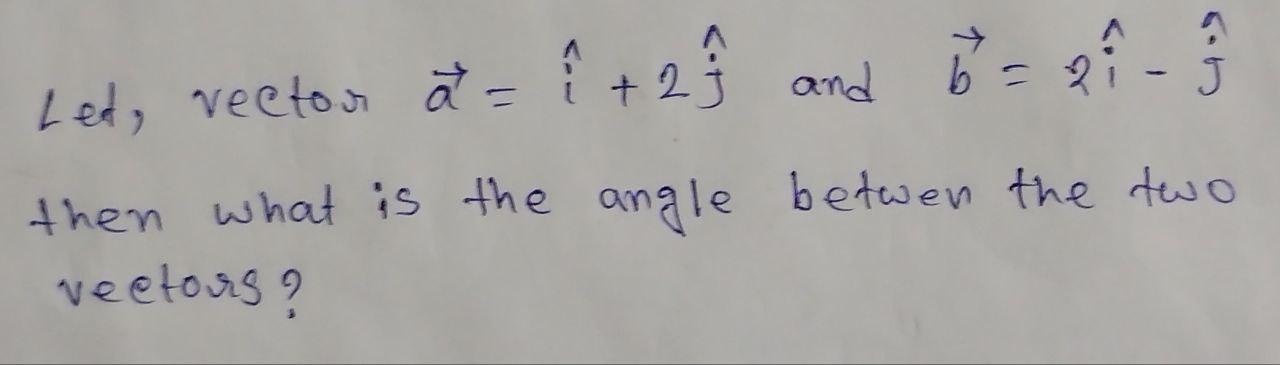 Let, vector a⃗ = î + 2ĵ and b⃗ = 2î - ĵ
then what is the angle betwen the two
vectors?